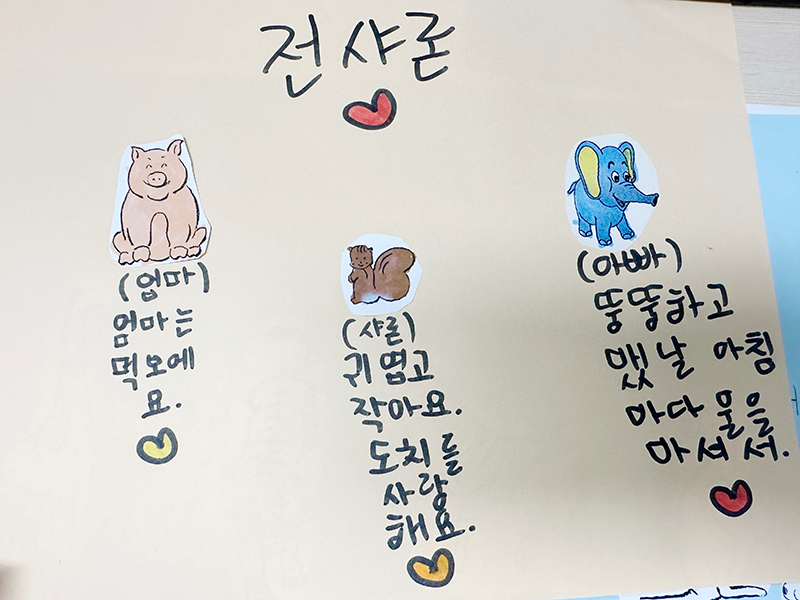 전샤론
(엄마)
엄마는
먹보에
요.
(샤론)
귀엽고
작아요.
도치를
사랑
해요.
(아빠)
뚱뚱하고
맸날 아침
마다 물을
마셔서.